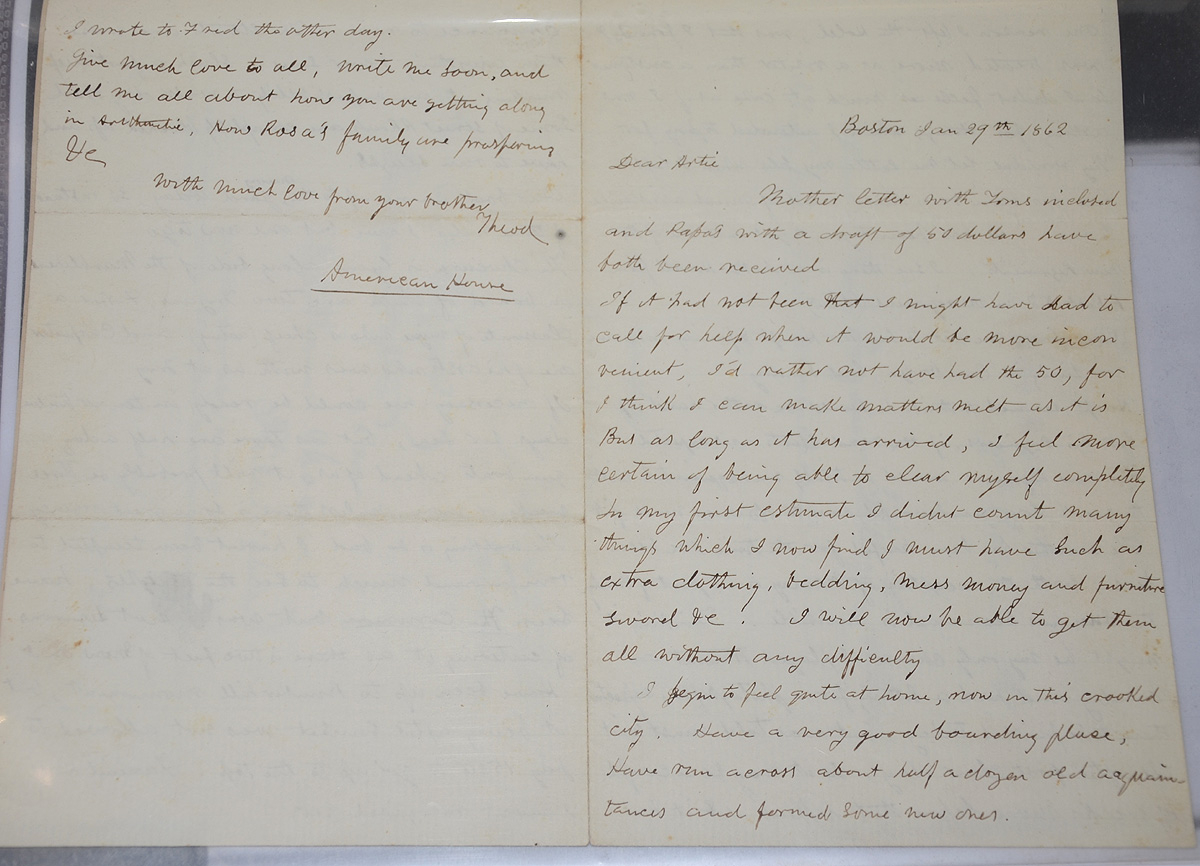 I wrote to Fred the other day.
Give much love to all, write me soon, and
tell me all about how you are getting along
in Arithmetic, How Rosa's family are prospering
&c
With much love from your brother
Theod
American House
Boston Jan 29th 1862
Dear Artie
Mother letter with Toms inclosed
and Papa's with a draft of 50 dollars have
both been received
If it had not been that I might have had to
call for help when it would be more incon
venient, I'd rather not have had the 50, for
I think I can make matters meet as it is
But as long as it has arrived, I feel more
certain of being able to clear myself completely
In my first estimate I didnt count many
things which I now find I must have such as
extra clothing, bedding, mess money and furniture
sword &c. I will now be able to get them
all without any difficulty
I begin to feel quite at home, now in this crooked
city. Have a very good bounding pluse,
Have run across about half a dozen old acquain-
tances and formed some new ones.